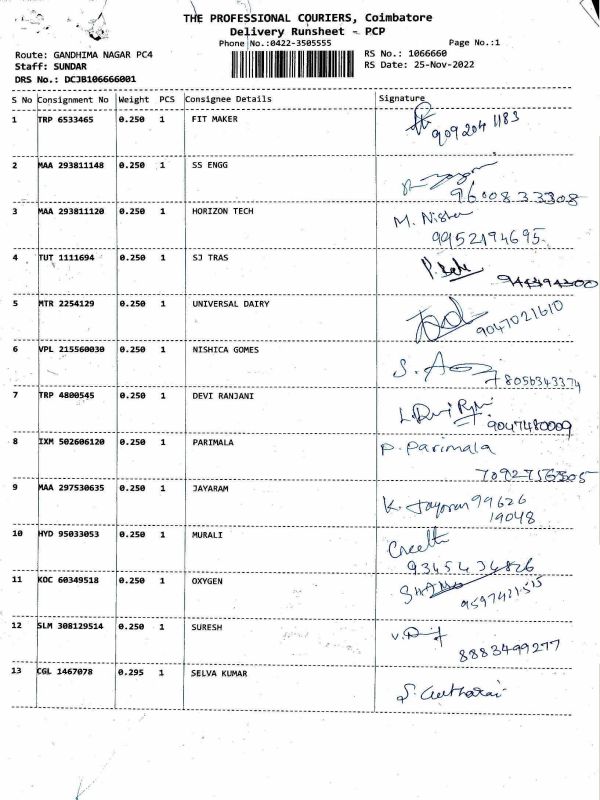 THE PROFESSIONAL COURIERS, Coimbatore
Delivery Runsheet - PCP
Phone No.:0422-3505555
Page No.:1
Route: GANDHIMA NAGAR PC4
Staff: SUNDAR
DRS No.: DCJB106666001
RS No.: 1066660
RS Date: 25-Nov-2022
S No Consignment No Weight PCS Consignee Details Signature
1 TRP 6533465 0.250 1 FIT MAKER
909 204 1183
2 MAA 293811148 0.250 1 SS ENGG
9600833308
3 MAA 293811120 0.250 1 HORIZON TECH M. Nisha
9952194695
4 TUT 1111694 0.250 1 SJ TRAS
5 MTR 2254129 0.250 1 UNIVERSAL DAIRY
9047021610
6 VPL 215560030 0.250 1 NISHICA GOMES
8056343374
7 TRP 4800545 0.250 1 DEVI RANJANI
9047480009
8 IXM 502606120 0.250 1 PARIMALA P. Parimala
9 MAA 297530635 0.250 1 JAYARAM K. Jayoram 99626
19048
10 HYD 95033053 0.250 1 MURALI
9345434826
11 KOC 60349518 0.250 1 OXYGEN
9597421515
12 SLM 308129514 0.250 1 SURESH
8883499277
13 CGL 1467078 0.295 1 SELVA KUMAR